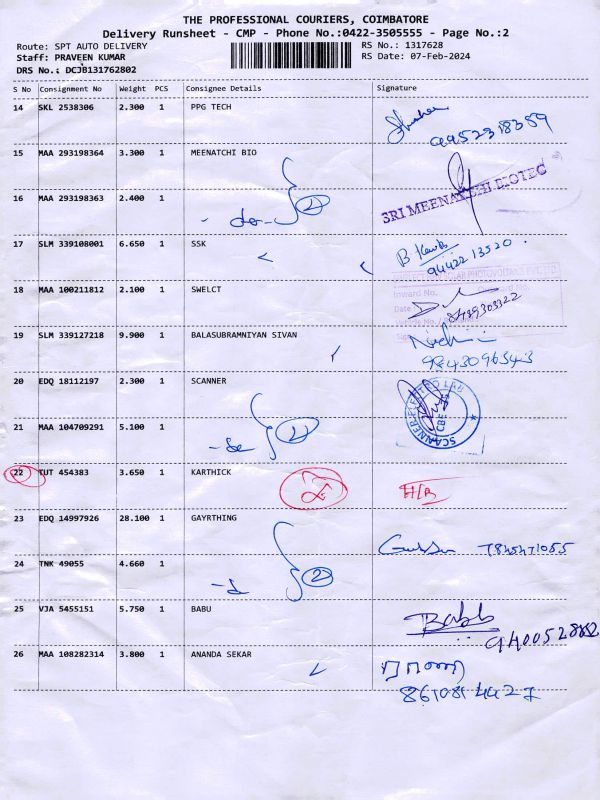 THE PROFESSIONAL COURIERS, COIMBATORE
Delivery Runsheet - CMP - Phone No.:0422-3505555 - Page No.:2
Route: SPT AUTO DELIVERY
RS No.: 1317628
Staff: PRAVEEN KUMAR
RS Date: 07-Feb-2024
DRS No.: DCJB131762802
S No Consignment No Weight PCS Consignee Details Signature
14 SKL 2538306 2.300 1 PPG TECH
9952318359
15 MAA 293198364 3.300 1 MEENATCHI BIO
SRI MEENATCHI BIOTEC
16 MAA 293198363 2.400 1
- do - 2
17 SLM 339108001 6.650 1 SSK
9442213520
18 MAA 100211812 2.100 1 SWELCT
Inward No.
Date
8489303322
19 SLM 339127218 9.900 1 BALASUBRAMNIYAN SIVAN
9843096343
20 EDQ 18112197 2.300 1 SCANNER
21 MAA 104709291 5.100 1
22 TUT 454383 3.650 1 KARTHICK
H/B
23 EDQ 14997926 28.100 1 GAYRTHING
24 TNK 49055 4.660 1
2
25 VJA 5455151 5.750 1 BABU
Babb
26 MAA 108282314 3.800 1 ANANDA SEKAR
8610814427